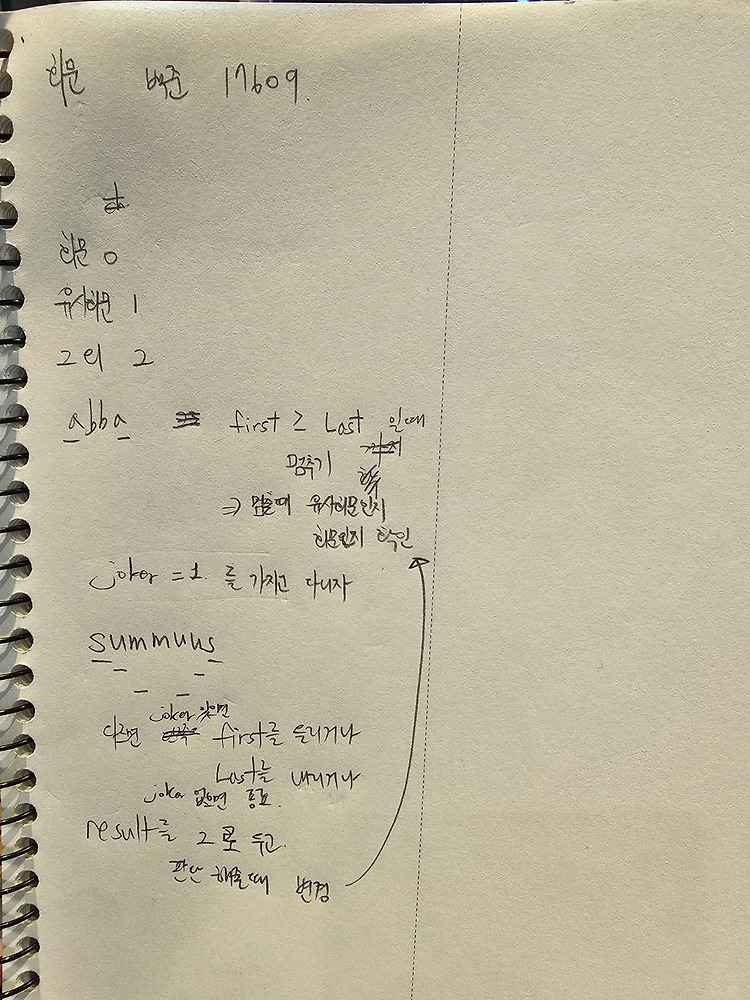 회문 백준 17609.
회문 0
유사회문 1
그 외 2
abba first ≥ Last 일때
멈추기
⇒ 멈출때 유사회문인지
회문인지 확인
joker = 1 를 가지고 다니자
summuus
joker 있으면
다르면 first를 늘리거나
Last를 내리거나
joker 없으면 종료.
result를 2로 두고
판단 했을때 변경